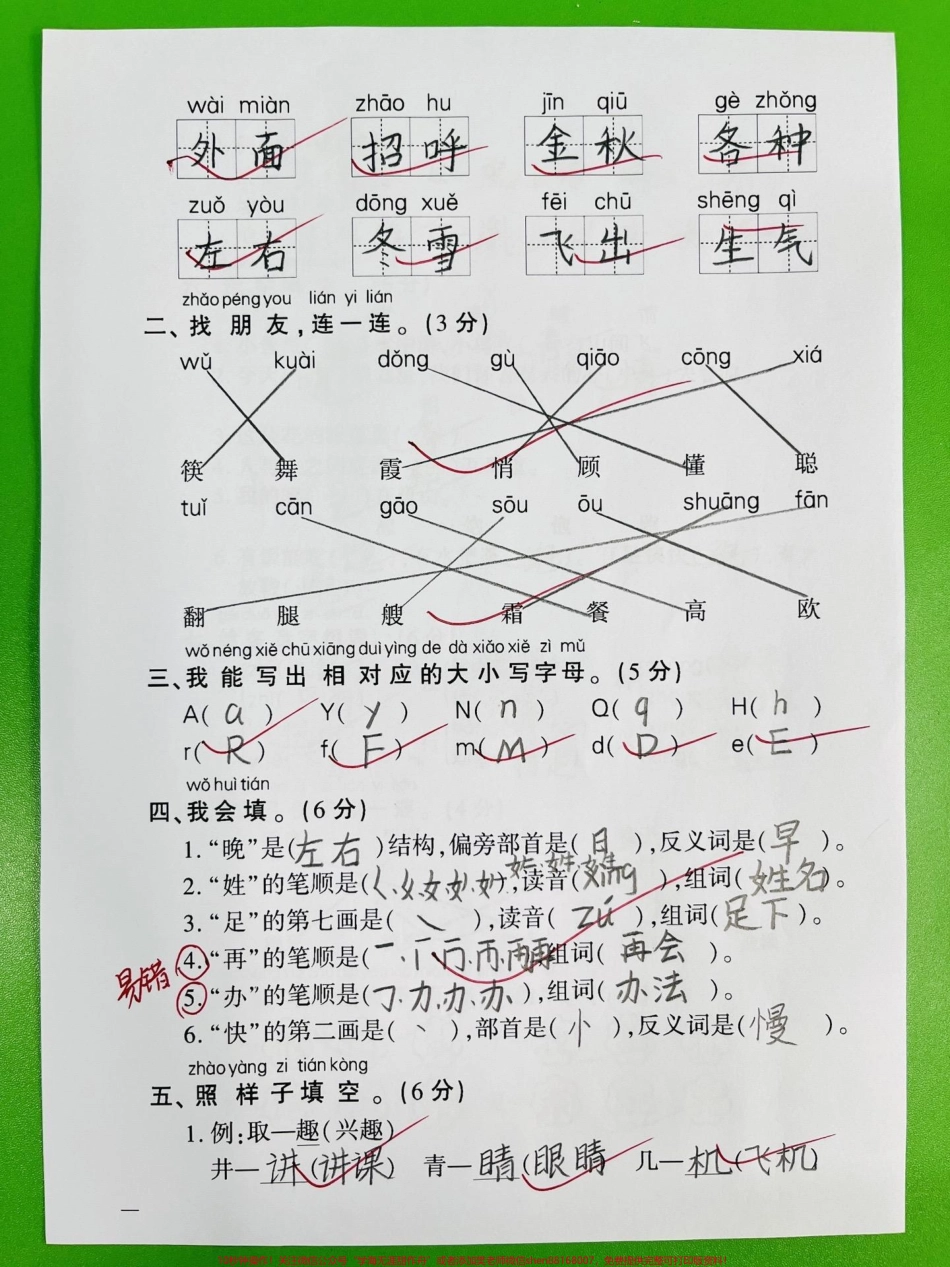 wài miàn zhāo hu jīn qiū gè zhǒng
外面 招呼 金秋 各种
zuǒ yòu dōng xuě fēi chū shēng qì
左右 冬雪 飞出 生气
zhǎo péng you lián yi lián
二、找朋友,连一连。(3分)
wǔ kuài dǒng gù qiāo cōng xiá
筷 舞 霞 悄 顾 懂 聪
tuǐ cān gāo sōu ōu shuāng fān
翻 腿 艘 霜 餐 高 欧
wǒ néng xiě chū xiāng duì yìng de dà xiǎo xiě zì mǔ
三、我能写出相对应的大小写字母。(5分)
A(a) Y(y) N(n) Q(q) H(h)
r(R) f(F) m(M) d(D) e(E)
wǒ huì tián
四、我会填。(6分)
1.“晚”是(左右)结构,偏旁部首是(日),反义词是(早)。
2.“姓”的笔顺是( ),读音( ),组词(姓名)。
3.“足”的第七画是(㇏),读音(zú),组词(足下)。
易错 4.“再”的笔顺是( ),组词(再会)。
5.“办”的笔顺是(㇆、力、办、办),组词(办法)。
6.“快”的第二画是(丶),部首是(忄),反义词是(慢)。
zhào yàng zi tián kòng
五、照样子填空。(6分)
1.例:取—趣(兴趣)
井—讲(讲课) 青—睛(眼睛) 几—机(飞机)